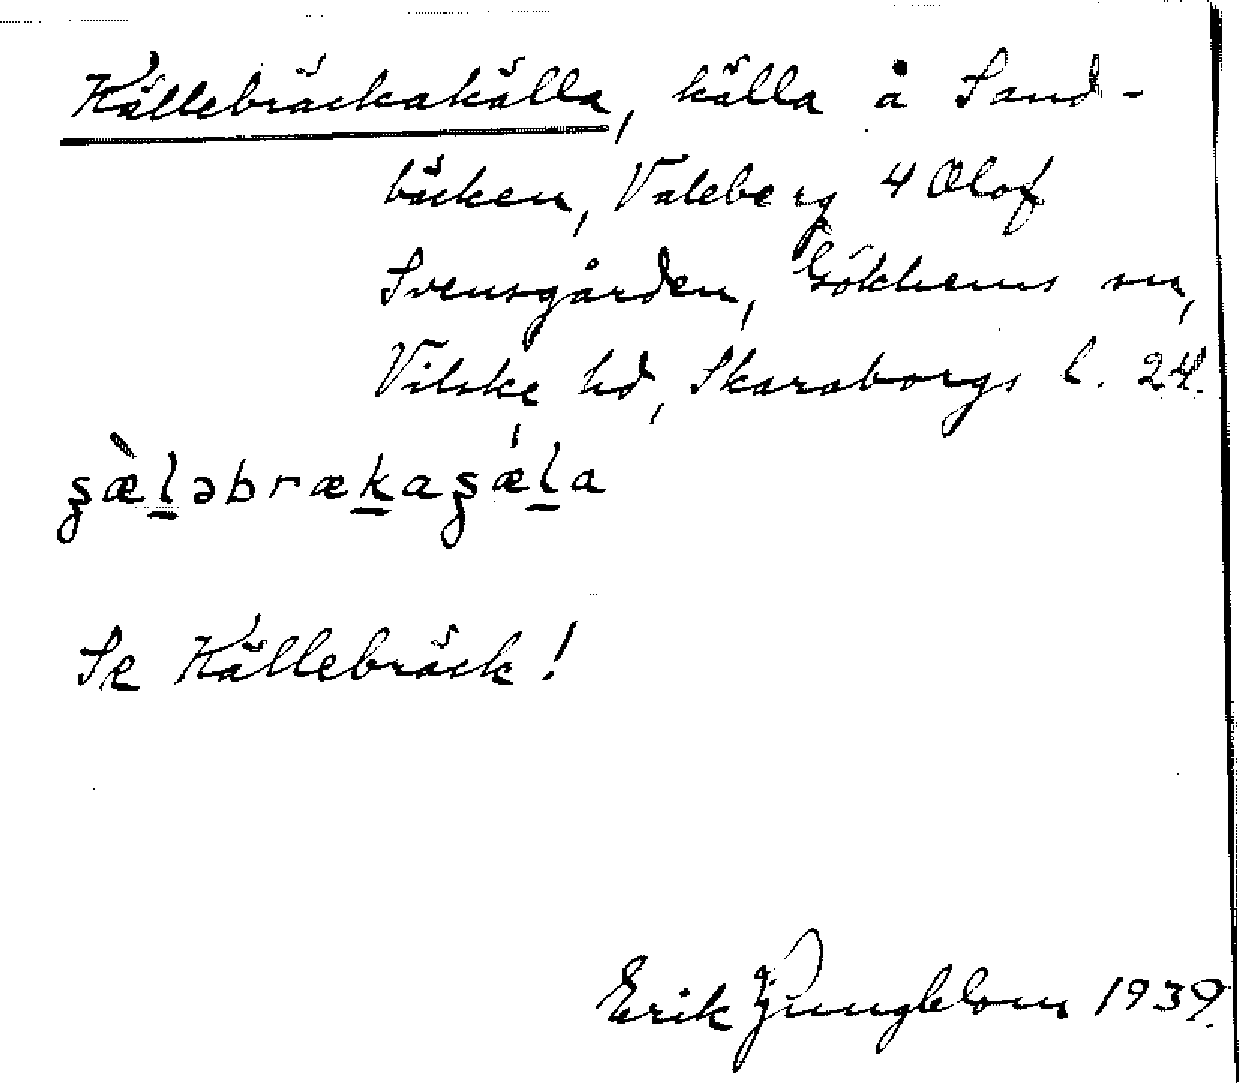 Källebräckakälla, källa å Sand-
bäcken, Valeberg 4 Olof
Svensgården, Gökhems sn,
Vilske hd, Skaraborgs l. 24.
s̨æ̀l̲əbræk̲as̨æ̍l̲a
Se Källebräck!
Erik Ljungblom 1939.